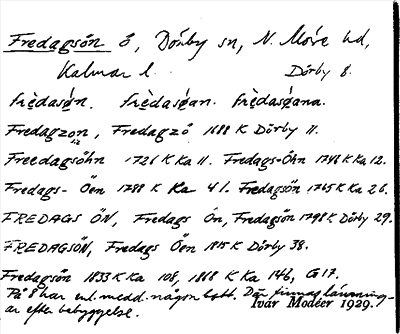 Fredagsön ö, Dörby sn, N. Möre hd,
Kalmar l. Dörby 8.
frèdasøn. frèdasøan. frèdasøana.
Fredagzon, Fredagzö 1688 K Dörby 11.
sic
Freedagsöhn 1726 K Ka 11. Fredags-Öhn 1748 K Ka 12.
Fredags-Öen 1788 K Ka 41. Fredagsön 1765 K Ka 26.
FREDAGS ÖN, Fredags Ön, Fredagsön 1798 K Dörby 29.
FREDAGSÖN, Fredags Öen 1815 K Dörby 38.
Fredagsön 1833 K Ka 108, 1868 K Ka 146, G 17.
På ö har enl. medd. någon bott. Där finnas lämning-
ar efter bebyggelse. Ivar Modéer 1929.